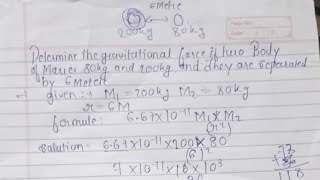 6 Metre
200kg 80kg
Determine the gravitational force if two Body
of Masses 80kg and 200kg and they are separated
by 6 Meter
given :→ M₁ = 200kg M₂ = 80kg
r = 6M
formule: 6.67×10⁻¹¹ M₁×M₂
(r²)
Solution = 6.67×10⁻¹¹ × 200×80
(6)²
7 × 10⁻¹¹ × 16 × 10³
118